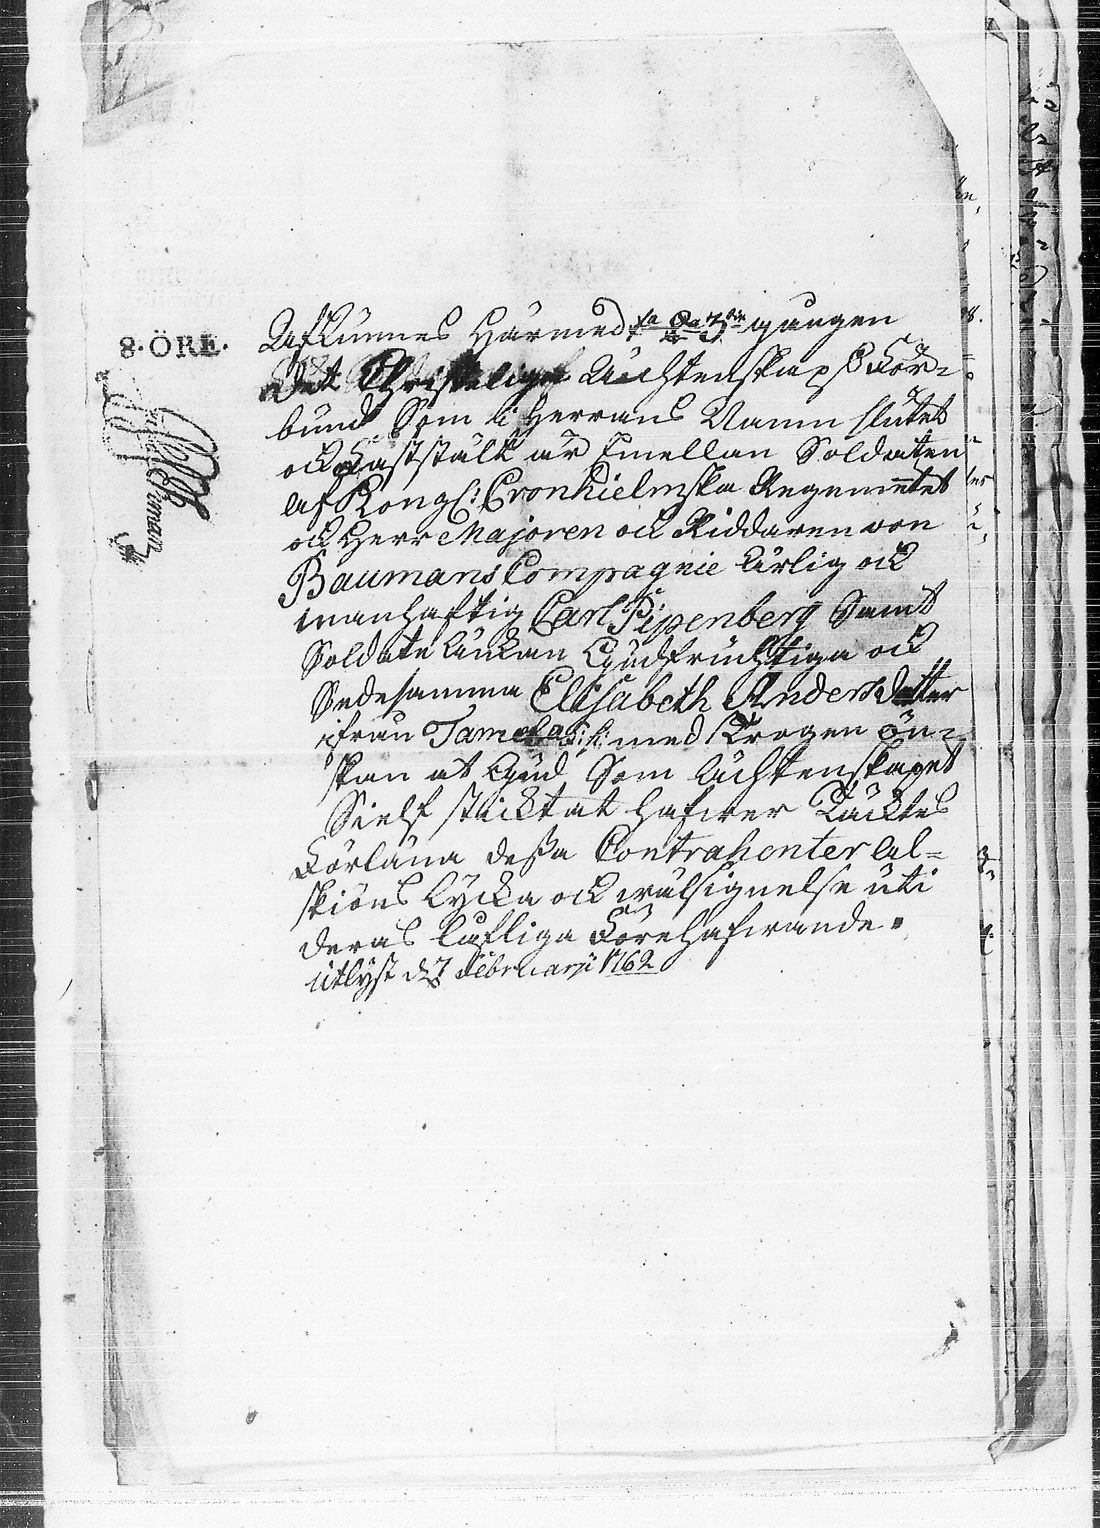 8·ÖRE·
Afkunnes Härmed 1a 2a 3die gången
Det Christeliga Ächtenskaps För=
bund Som i Herrans Namn slutet
och Faststält är Emellan Soldaten
af Kongl: Cronhielmska Regementet
och Herr Majoren och Riddaren von
Baumans Compagnie Ärlig och
manhaftig Carl Pipenberg Samt
Soldate Änkan Gudfrucktiga och
Sedesamma Elisabeth Andersdotter
ifrån Tamela S: k: med Trogen ön=
skan at Gud Som Ächtenskapet
Sielf sticktat hafwer Täcktes
Förläna dessa Contrahenter al=
skiöns lycka och wälsignelse uti
deras lofliga Förehafwande.
utlyst d 7 Februarii 1762